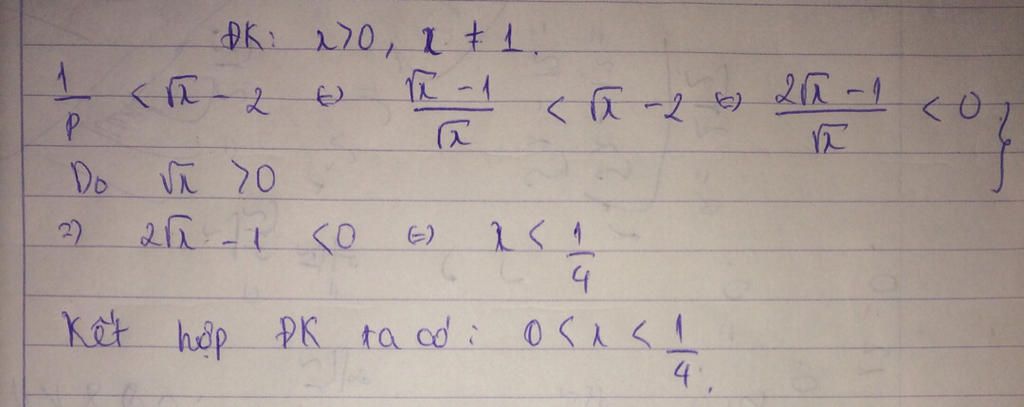 ĐK: x>0, x ≠ 1.
1/P < √x - 2 ⇔ (√x - 1)/√x < √x - 2 ⇔ (2√x - 1)/√x < 0 }
Do √x >0
=> 2√x - 1 <0 ⇔ x < 1/4
Kết hợp ĐK ta có: 0 < x < 1/4.